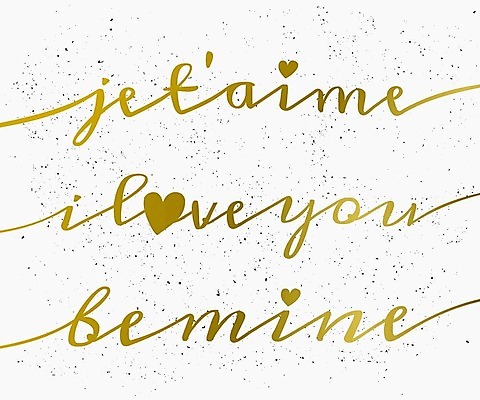 je t'aime
i love you
be mine